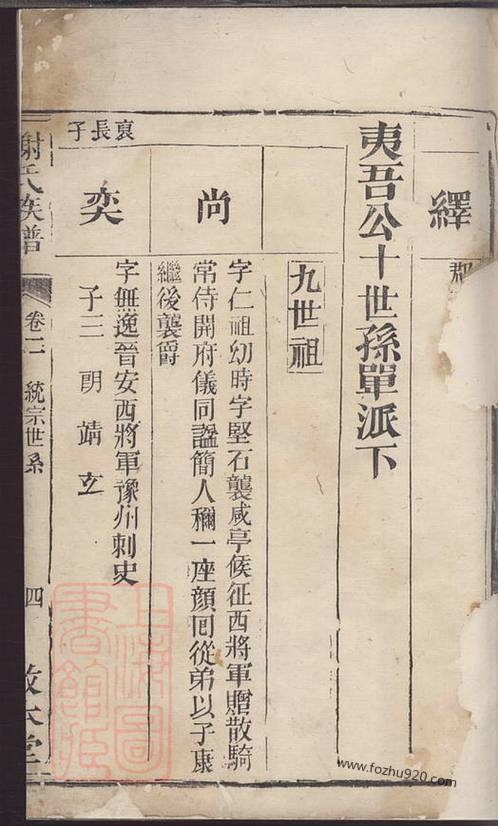 繹
夷吾公十世孫單派下
九世祖
尚
字仁祖幼時字堅石襲咸亭候征西將軍贈散騎
常侍開府儀同謚簡人稱一座顔回從弟以子康
繼後襲爵
裒長子
奕
字無逸晉安西將軍豫州刺史
子三 明 靖 玄
謝氏族譜
卷二 統宗世系
四
上海圖書館藏
www.fozhu920.com